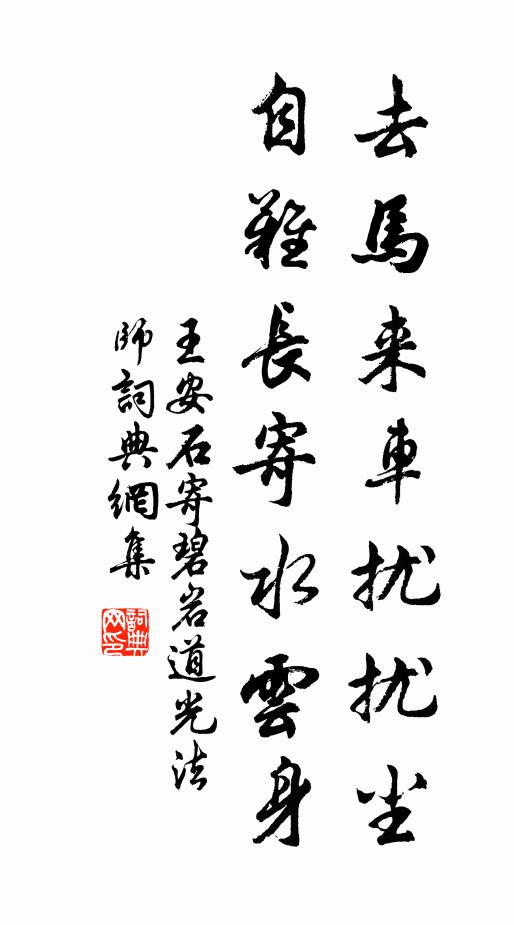 去馬来車扰扰尘
自難長寄水雲身
王安石寄碧岩道光法
師詞典網集
詞典
网印